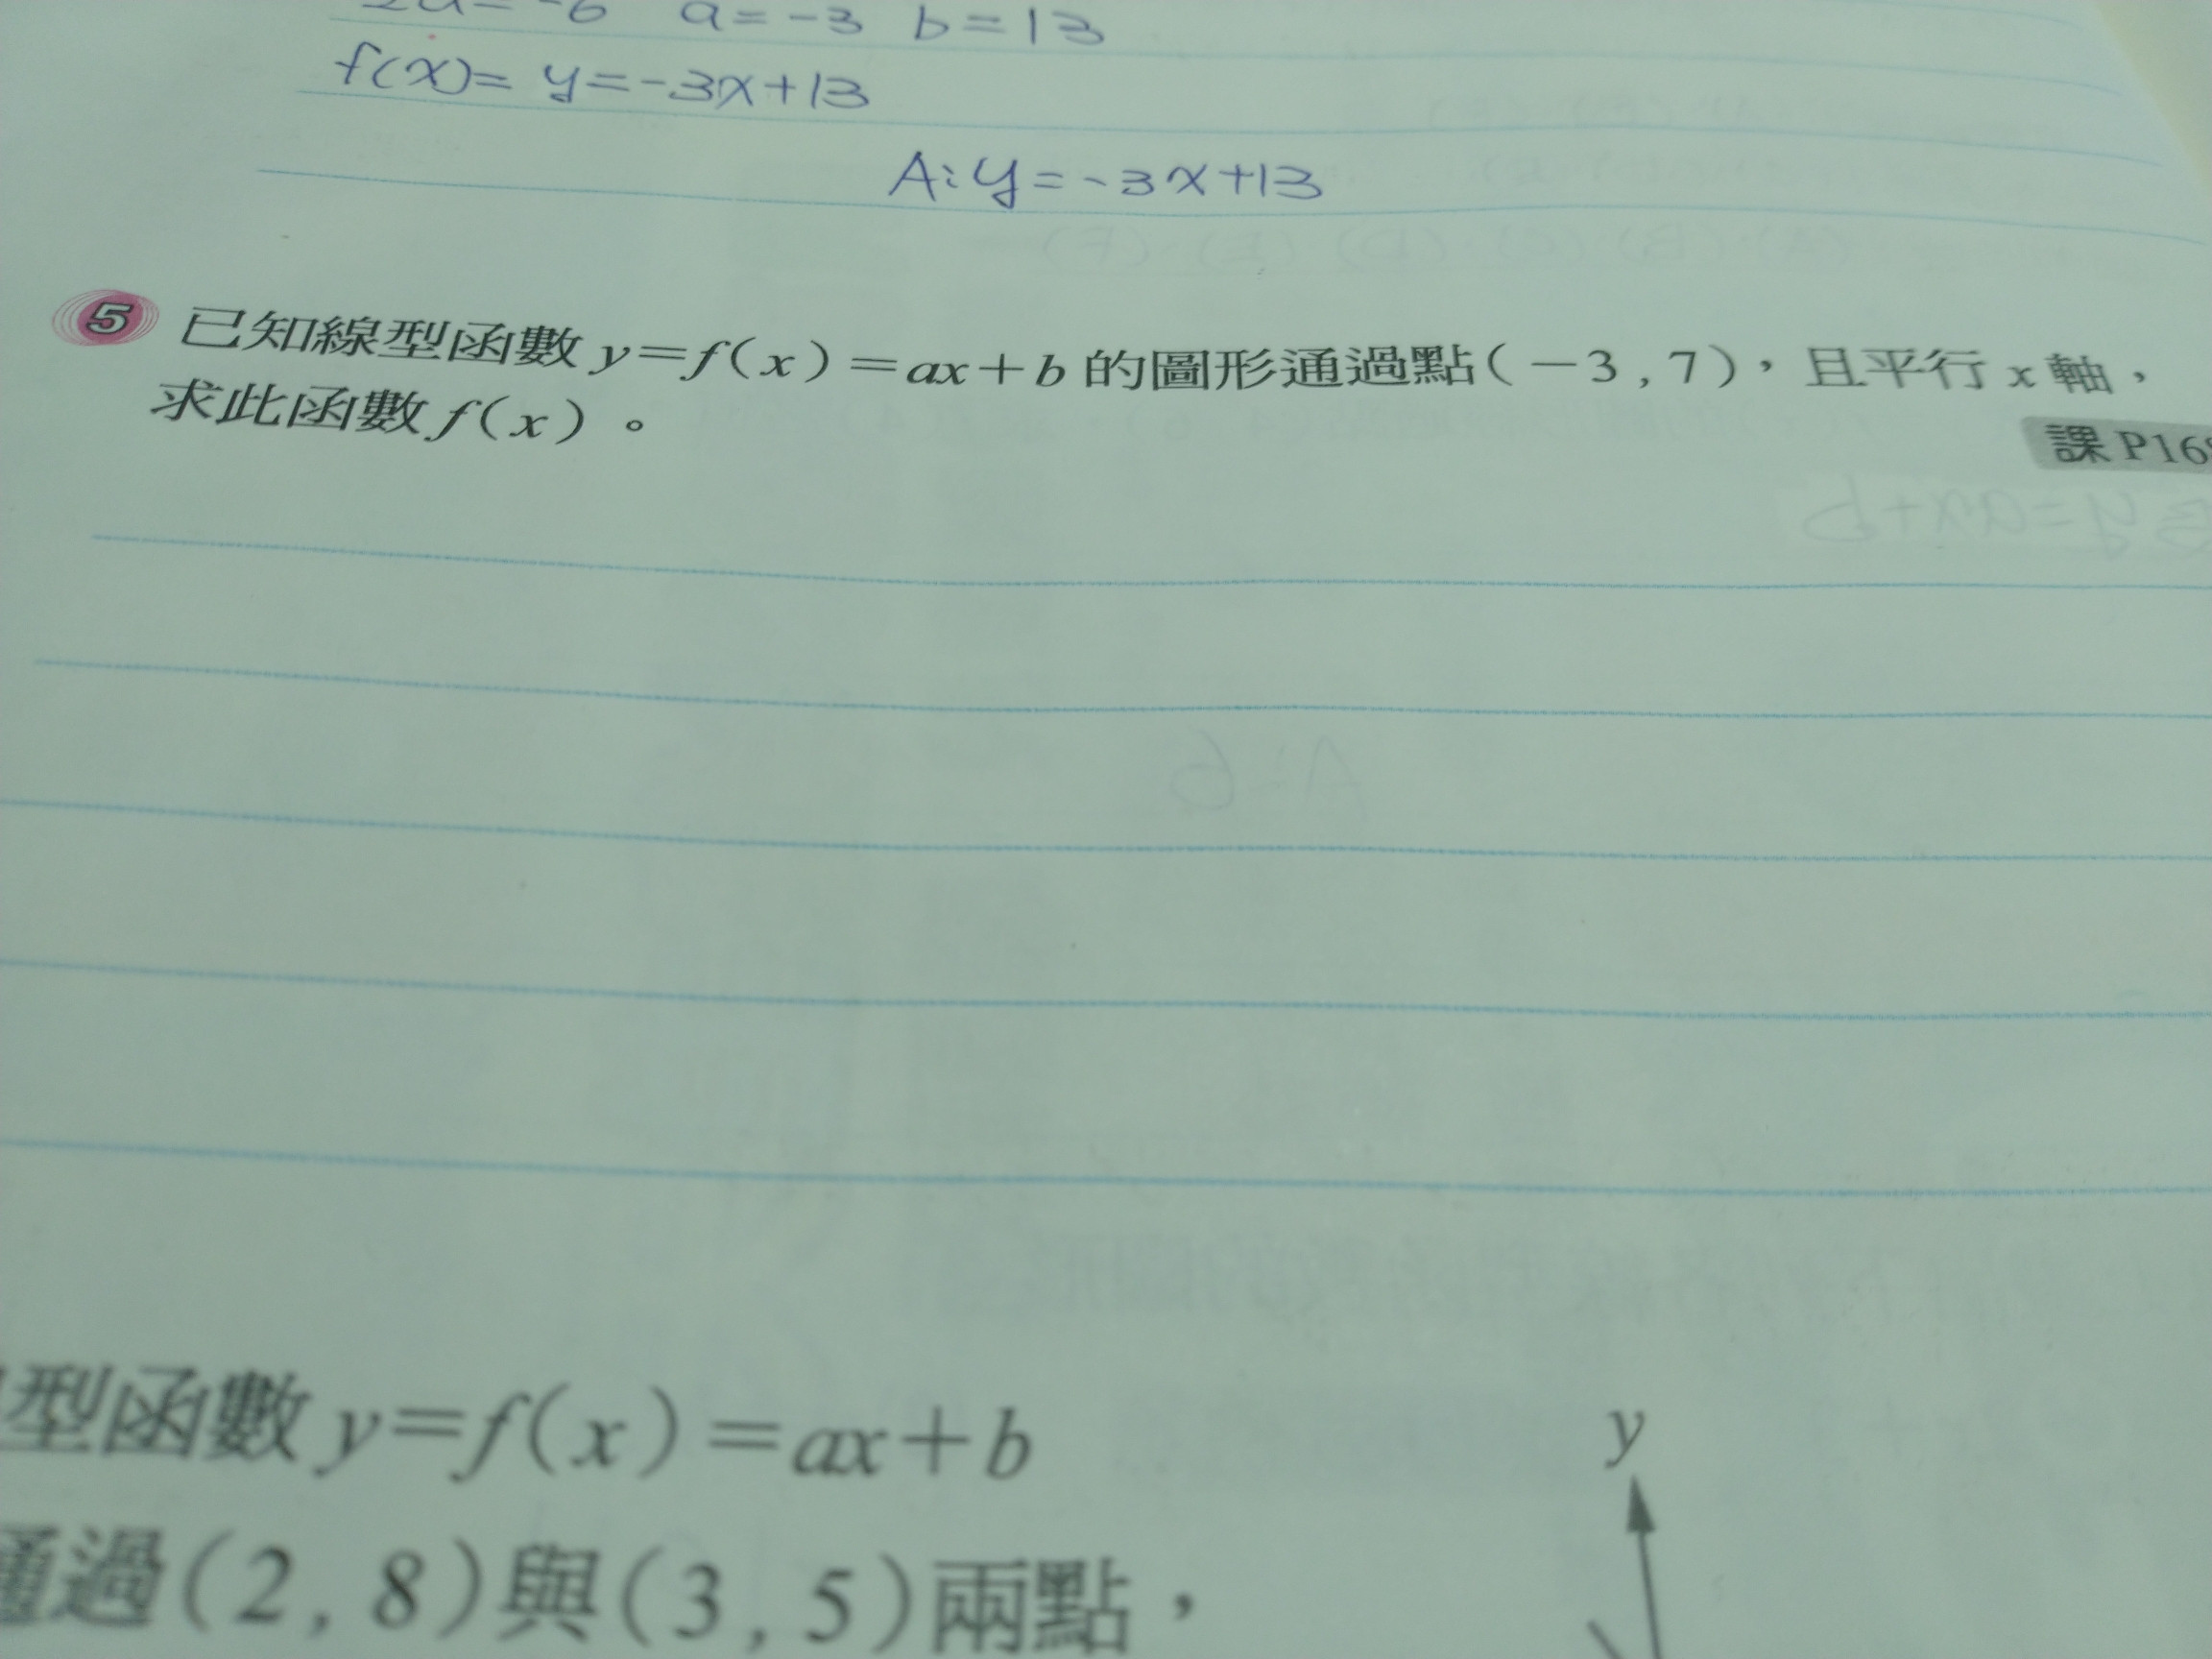 a=-3 b=13
f(x)= y=-3x+13
A:y=-3x+13
5 已知線型函數 y=f(x)=ax+b 的圖形通過點(-3,7),且平行 x 軸,
求此函數 f(x)。
課 P16
型函數 y=f(x)=ax+b
y
通過(2,8)與(3,5)兩點,